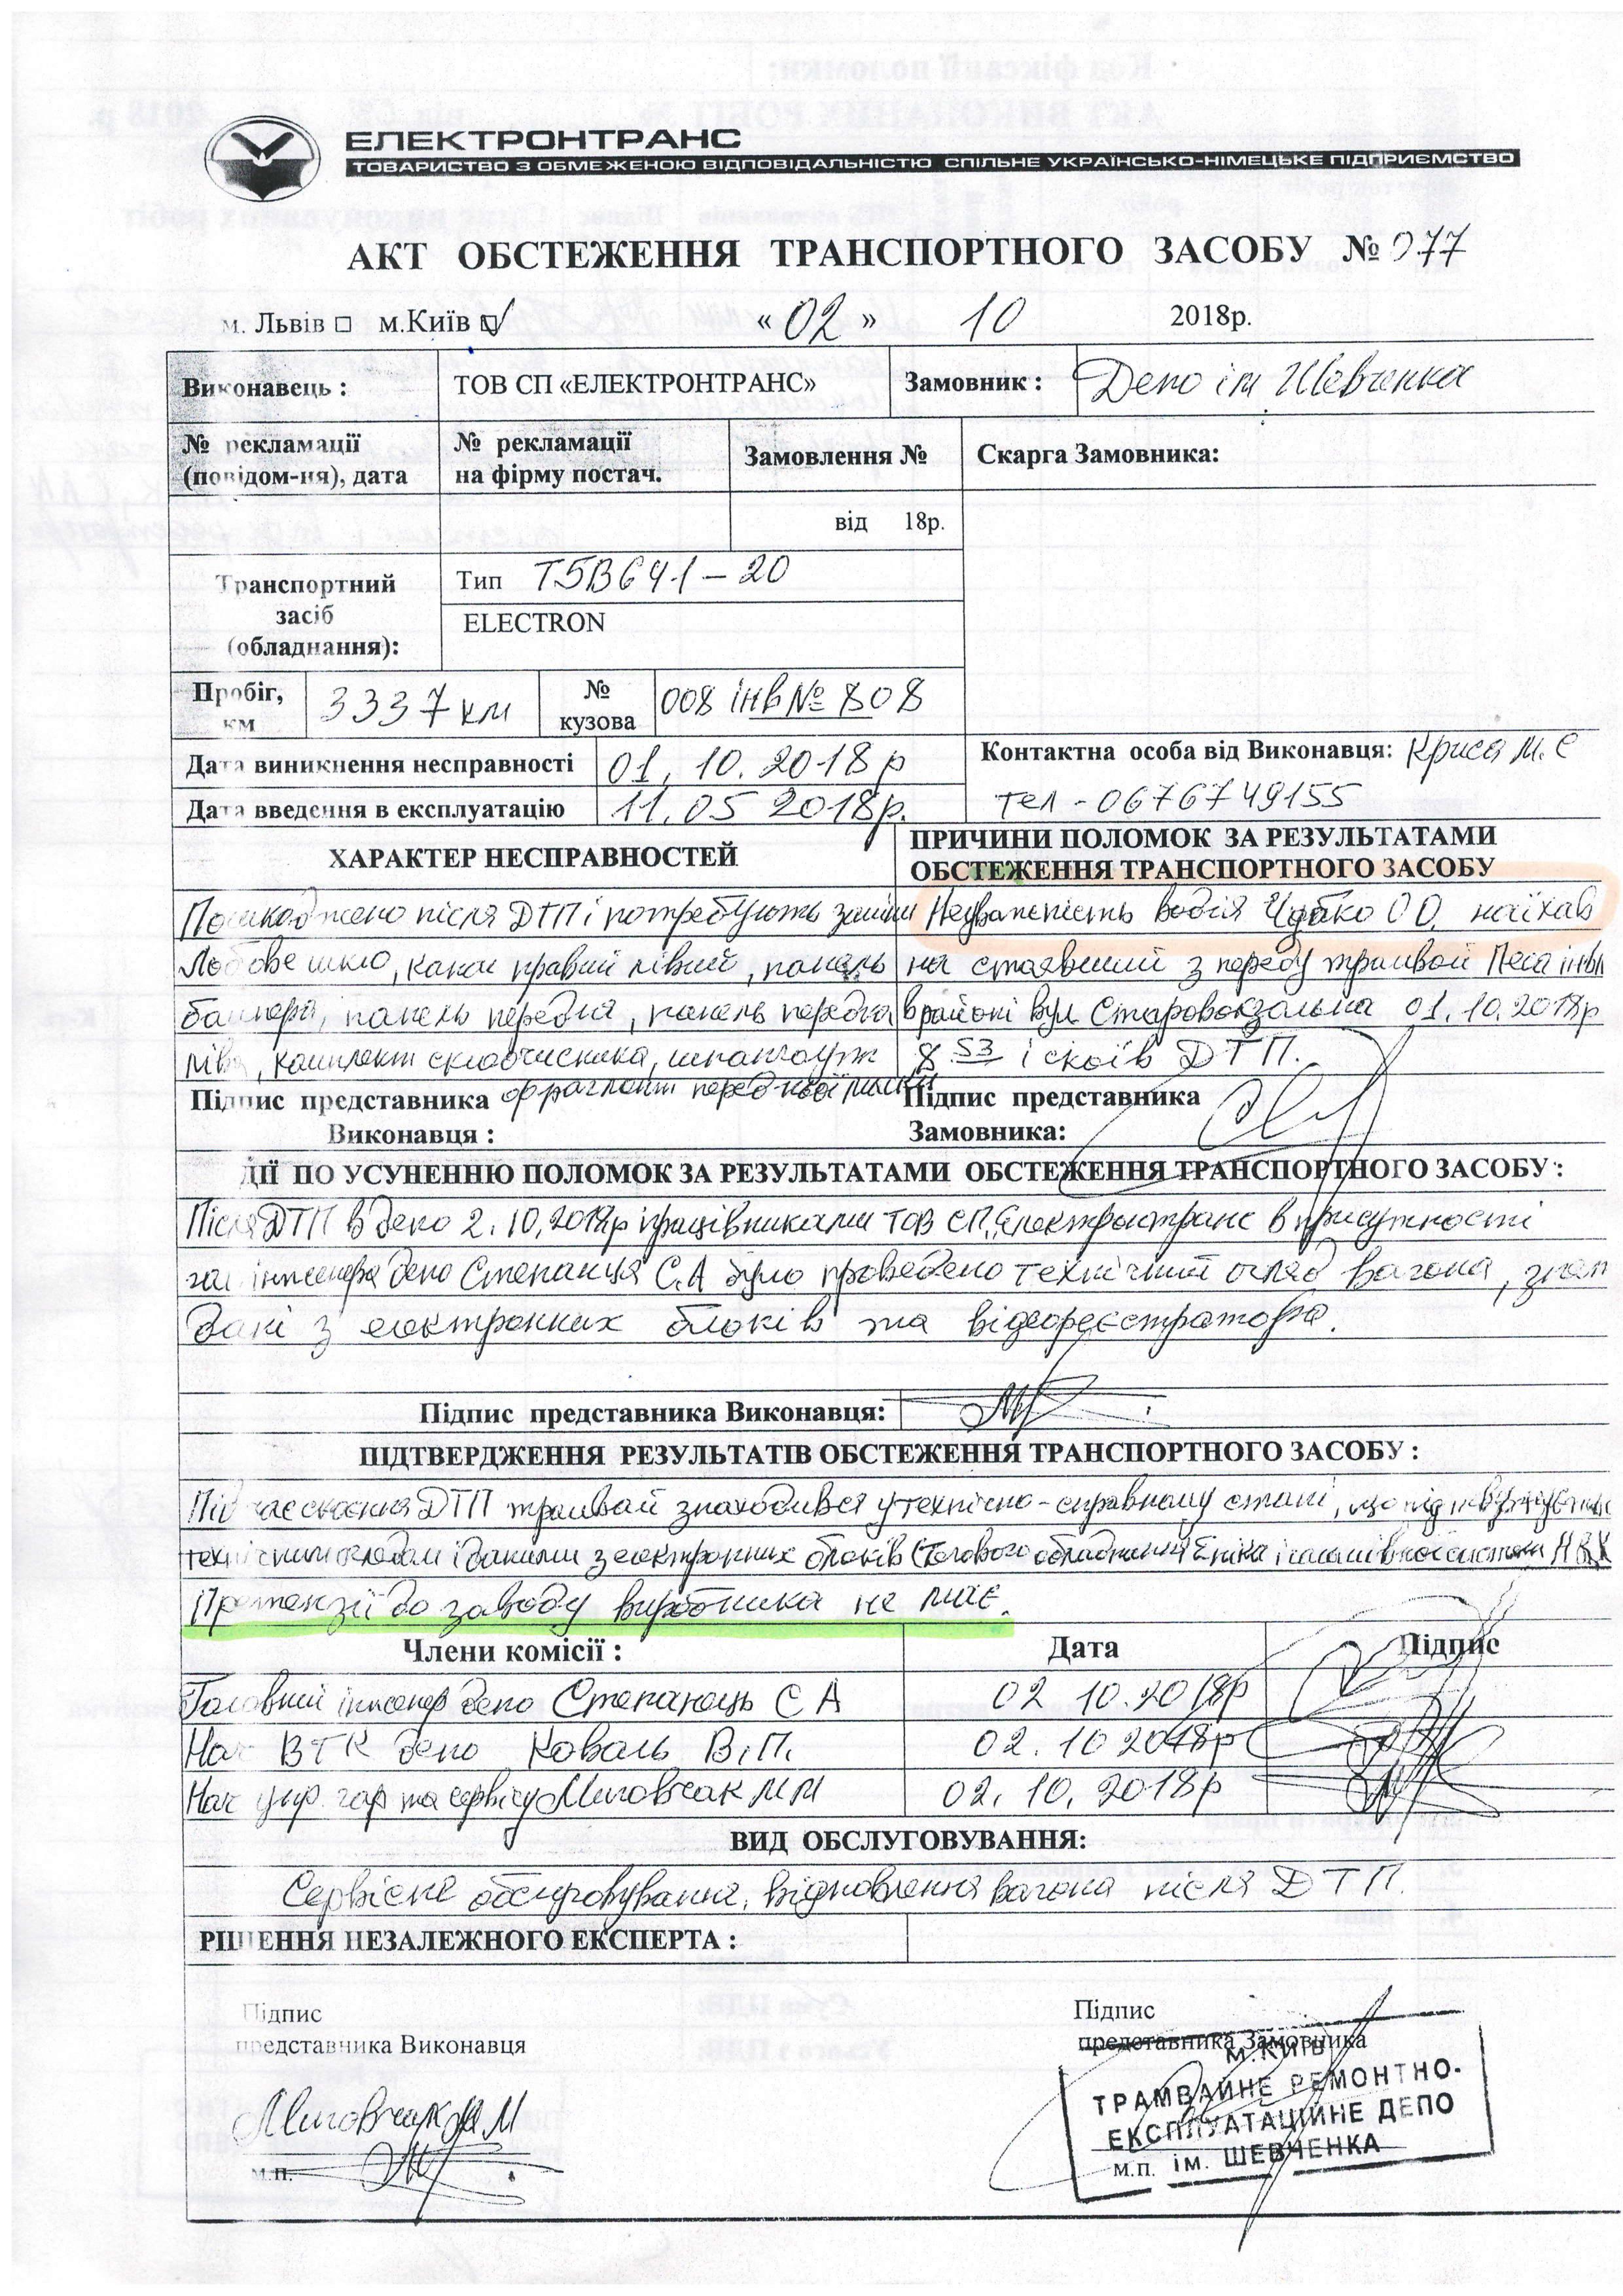 ЕЛЕКТРОНТРАНС
ТОВАРИСТВО З ОБМЕЖЕНОЮ ВІДПОВІДАЛЬНІСТЮ СПІЛЬНЕ УКРАЇНСЬКО-НІМЕЦЬКЕ ПІДПРИЄМСТВО
АКТ ОБСТЕЖЕННЯ ТРАНСПОРТНОГО ЗАСОБУ № 077
м. Львів □ м.Київ ☑ « 02 » 10 2018р.
Виконавець : ТОВ СП «ЕЛЕКТРОНТРАНС» Замовник : Депо ім Шевченка
№ рекламації (повідом-ня), дата
№ рекламації на фірму постач.
Замовлення №
Скарга Замовника:
від 18р.
Транспортний засіб (обладнання):
Тип Т5В641-20
ELECTRON
Пробіг, км 3337 км № кузова 008 інв № 808
Дата виникнення несправності 01.10.2018р
Контактна особа від Виконавця: Криса М.Є
Дата введення в експлуатацію 11.05 2018р.
тел - 0676749155
ХАРАКТЕР НЕСПРАВНОСТЕЙ
ПРИЧИНИ ПОЛОМОК ЗА РЕЗУЛЬТАТАМИ ОБСТЕЖЕННЯ ТРАНСПОРТНОГО ЗАСОБУ
Пошкоджено після ДТП і потребують заміни
Лобове шкло, капот правий лівий, панель
бампера, панель передня, панель передня
ліва, комплект склоочисника, шпангоут
фрагмент передньої маски
Неуважність водія О О. наїхав
на стоявший з переду трамвай Песа
в районі вул Старовокзальна 01.10.2018р
8 53 і скоїв ДТП.
Підпис представника Виконавця :
Підпис представника Замовника:
ДІЇ ПО УСУНЕННЮ ПОЛОМОК ЗА РЕЗУЛЬТАТАМИ ОБСТЕЖЕННЯ ТРАНСПОРТНОГО ЗАСОБУ :
Після ДТП в депо 2.10.2018р працівниками ТОВ СП „Електронтранс в присутності
гол інженера депо Степанця С.А було проведено технічний огляд вагона,
дані з електронних блоків та відеореєстратора.
Підпис представника Виконавця:
ПІДТВЕРДЖЕННЯ РЕЗУЛЬТАТІВ ОБСТЕЖЕННЯ ТРАНСПОРТНОГО ЗАСОБУ :
Під час скоєння ДТП трамвай знаходився у технічно-справному стані, що
технічним оглядом і даними з електронних блоків (тягового обладнання і гальмівної системи
Претензії до заводу виробника не має.
Члени комісії : Дата Підпис
Головний інженер депо Степанець С А 02 10.2018р
Нач ВТК депо Коваль В.П. 02.10 2018р
Нач упр. гар та сервісу Миговчак М М 02.10.2018р
ВИД ОБСЛУГОВУВАННЯ:
Сервісне обслуговування, відновлення вагона після ДТП.
РІШЕННЯ НЕЗАЛЕЖНОГО ЕКСПЕРТА :
Підпис
представника Виконавця
Миговчак М М
м.п.
Підпис
представника Замовника
м.КИЇВ
ТРАМВАЙНЕ РЕМОНТНО-
ЕКСПЛУАТАЦІЙНЕ ДЕПО
м.п. ім. ШЕВЧЕНКА